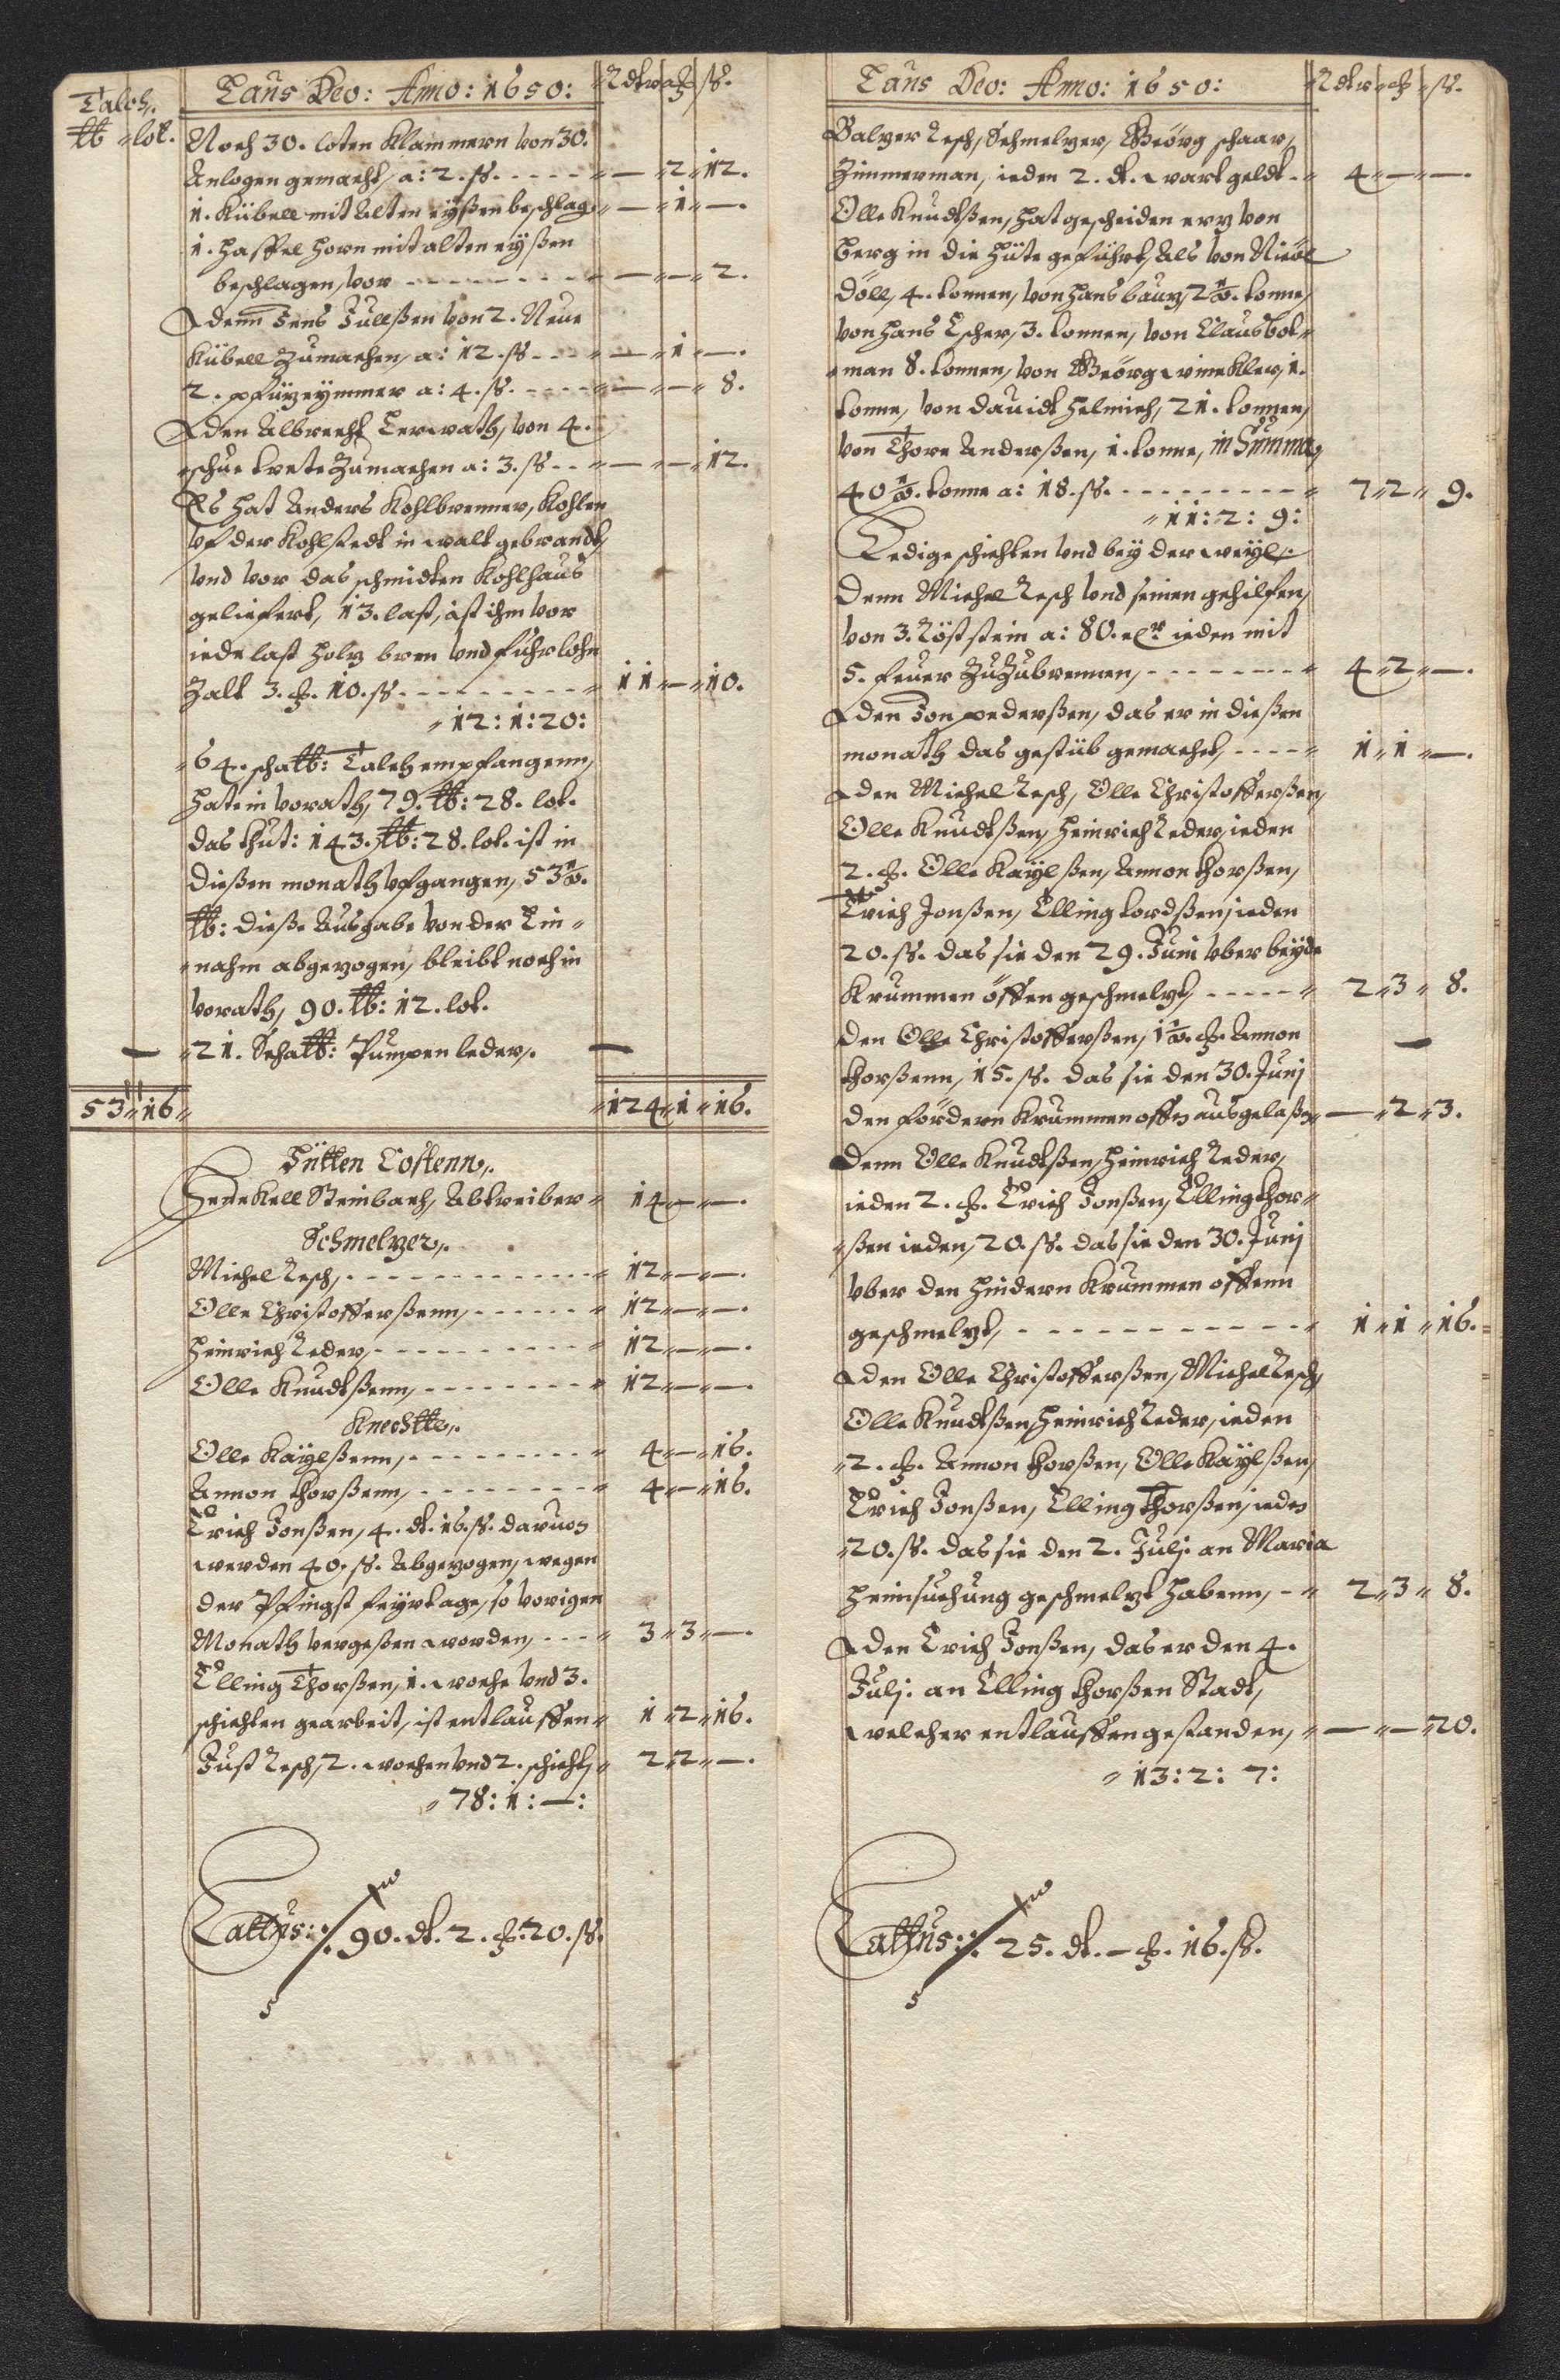 Talch.
℔ lot.
Laus Deo: Anno: 1650: Rdlr ß.
Noch 30. loten Klammern von 30.
Anlogen gemacht, a: 2. ß. — 2 12.
1. Kübell mit Alten eyßen beschlag — 1 —.
1. Haffel horn mit alten eyßen
beschlagen, vor — — 2.
denn Jens Jullßen von 2. Neue
Kübell Zumachen, a: 12. ß — 1 —.
2. pfützeymmer a: 4. ß. — — 8.
den Albrecht, von 4.
Zumachen a: 3. ß — — 12.
Es hat Anders Kohlbrenner, Kohlen
vf der Kohlstedt in walt gebrandt,
vnd vor das schmidten Kohlhaus
geliefert, 13. last, ist ihm vor
iede last holtz bren vnd führlohn
Zalt 3. 10. ß. 11 — 10.
12: 1: 20:
64. scha℔: Talch empfangenn,
hate in vorath, 79. ℔: 28. lot.
das thut: 143. ℔: 28. lot. ist in
dießen monath vfgangen, 53½.
℔: dieße Ausgabe von der Ein-
nahm abgezogen, bleibt noch in
vorath, 90. ℔: 12. lot.
21. Scha℔: Pumpen leder.
53 16 124 1 16.
Hütten Costenn.
Steinbach, Abtreiber 14 — —.
Schmeltzer.
Michel Resch, 12 — —.
Olle Christofferßenn, 12 — —.
Heinrich Reder, 12 — —.
Olle Knudtßenn, 12 — —.
Knechtte.
Olle Kaylßenn, 4 — 16.
Annon thorßenn, 4 — 16.
Erich Jonßen, 4. dl. 16. ß. daruon
werden 40. ß. Abgezogen, wegen
der Pfingst feyrtage, so vorigen
Monath vergeßen worden, 3 3 —.
Elling Thorßen, 1. woche vnd 3.
schichten gearbeit, ist entlauffen 1 2 16.
Just Resch, 2. wochen vnd 2. schicht, 2 2 —.
78: 1: —:
Lattus: 90. dl. 2. 20. ß.
Laus Deo: Anno: 1650: Rdlr ß.
Baltzer Resch, Schmeltzer, Geörg schaar,
Zimmerman, ieden 2. dl. wartgeldt 4 — —.
Olle Knudtßen, hat gescheiden ertz von
berg in die hüte geführt, Als von Nicöl
döll, 4. tonnen, von Hans bautz, 2½. tonne,
von Hans Escher, 3. tonnen, von Claus bot-
man 8. tonnen, von Geörg winckler, 1.
tonne, von dauidt helmich, 21. tonnen,
von Thore Anderßen, 1. tonne, in Summa,
40½. tonne a: 18. ß. 7 2 9.
11: 2: 9:
Ledige schichten vnd bey der weyl.
Denn Michel Resch vnd seinen gehilfen,
von 3. Röststein a: 80. ieden mit
5. feuer ZuZubrennen, 4 2 —.
den Jon pederßen, das er in dießen
monath das gestüb gemachet, 1 1 —.
den Michel Resch, Olle Christofferßen,
Olle Knudtßen, Heinrich Reder, ieden
2. Olle Kaylßen, Annon thorßen,
Erich Jonßen, Elling tordßen, ieden
20. ß. das sie den 29. Juni vber beyde
Krummen öffen geschmeltzt, 2 3 8.
den Olle Christofferßen, 1½. Annon
thorßenn, 15. ß. das sie den 30. Junj
den fördern Krummen offen ausgelaßen — 2 3.
Denn Olle Knudtßen, Heinrich Reder,
ieden 2. Erich Jonßen, Elling thor-
ßen ieden, 20. ß. das sie den 30. Junj
vber den hindern Krummen offenn
geschmeltzt, 1 1 16.
den Olle Christofferßen, Michel Resch,
Olle Knudtßen, Heinrich Reder, ieden
2. Annon thorßen, Olle Kaylßen,
Erich Jonßen, Elling Thorßen, ieden
20. ß. das sie den 2. Julj. an Maria
heimsuchung geschmeltzt habenn, 2 3 8.
den Erich Jonßen, das er den 4.
Julj. an Elling thorßen Stadt,
welcher entlauffen gestanden, — — 20.
13: 2: 7:
Lattus: 25. dl. — 16. ß.